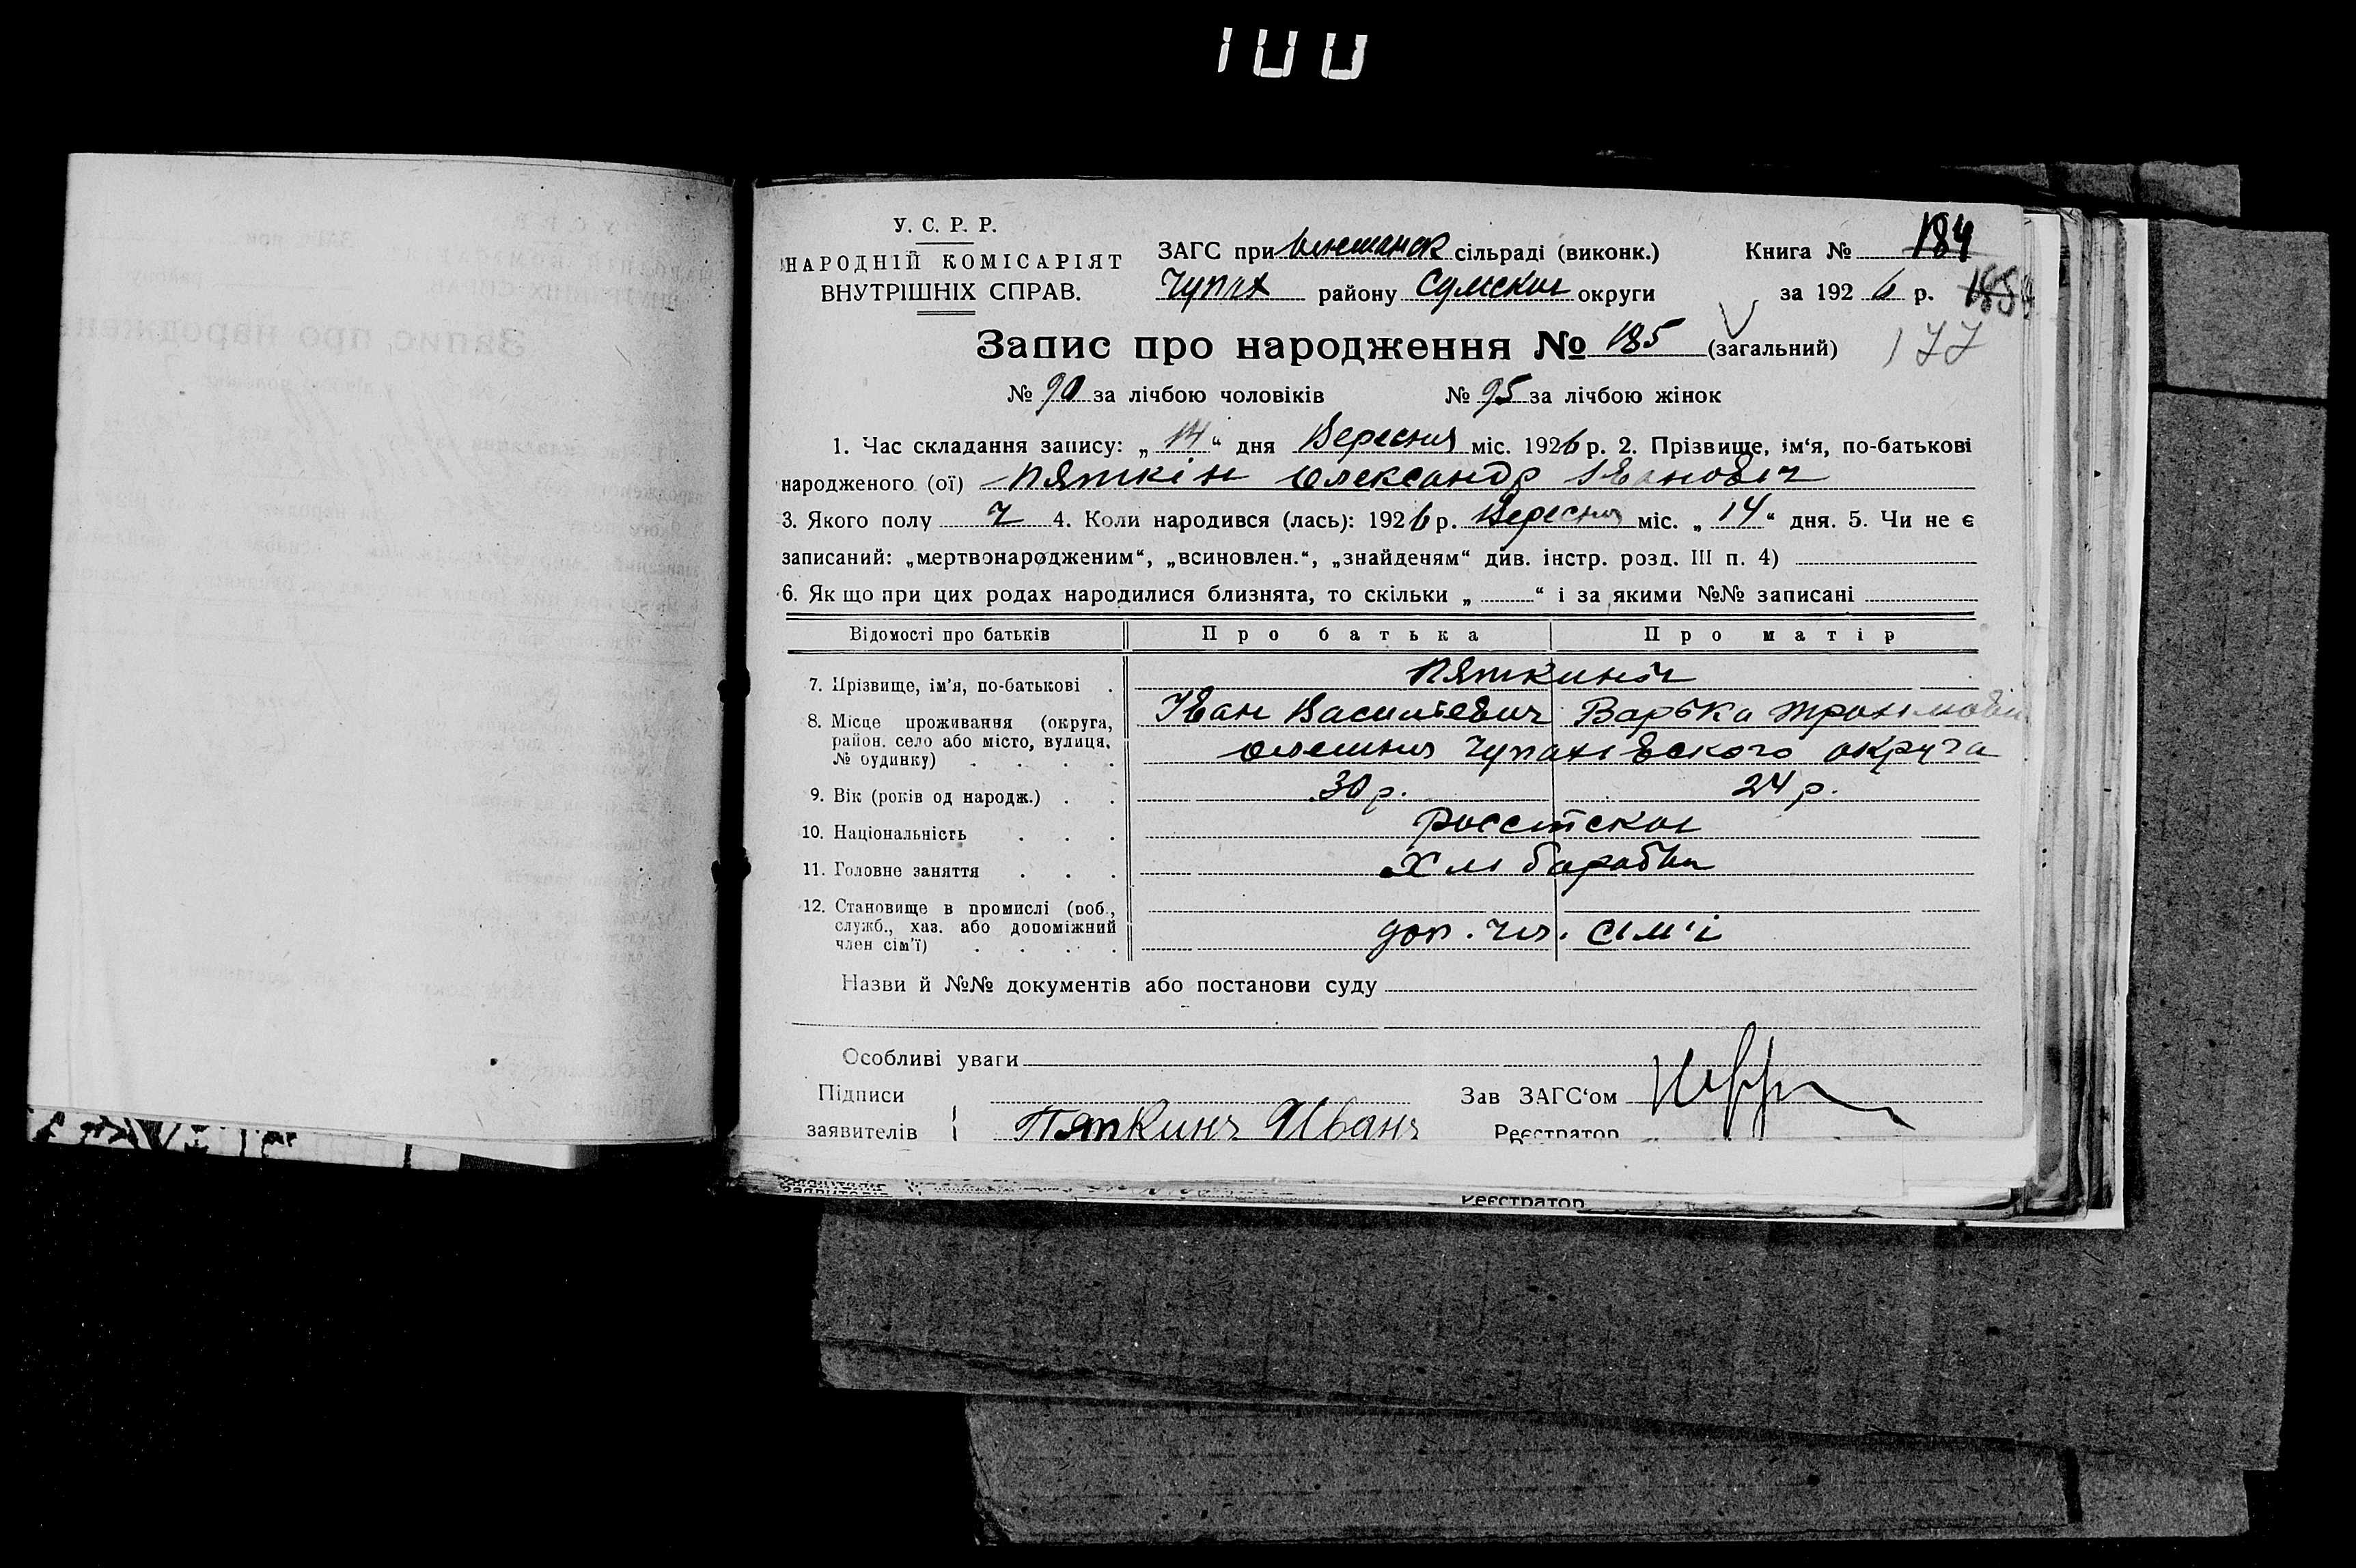 100
У. С. Р. Р.
НАРОДНІЙ КОМІСАРІЯТ
ВНУТРІШНІХ СПРАВ.
ЗАГС при сільраді (виконк.)
Чупах району Сумської округи
Книга № 184
за 1926 р.
177
Запис про народження № 185 (загальний)
№ 90 за лічбою чоловіків № 95 за лічбою жінок
1. Час складання запису: „14“ дня Вересня міс. 1926 р. 2. Прізвище, ім‘я, по-батькові
народженого (ої) Пяткін Олександр Іванович
3. Якого полу ч 4. Коли народився (лась): 1926 р. Вересня міс. „14“ дня. 5. Чи не є
записаний: „мертвонародженим“, „всиновлен.“, „знайденям“ див. інстр. розд. III п. 4)
6. Як що при цих родах народилися близнята, то скільки „ “ і за якими №№ записані
Відомості про батьків Про батька Про матір
7. Прізвище, ім‘я, по-батькові . Пяткини
8. Місце проживання (округа, Іван Васильевич Варька
район, село або місто, вулиця,
№ будинку) . . . . Олешня Чупахівского округа
9. Вік (років од народж.) . . 30 р. 24 р.
10. Національність . . . россійской
11. Головне заняття . . . Хліборобство
12. Становище в промислі (роб.,
служб., хаз. або допоміжний
член сім‘ї) . . . . доп. чл. сім'ї
Назви й №№ документів або постанови суду
Особливі уваги
Підписи
заявителів Пяткинъ Иванъ
Зав ЗАГС‘ом
Реєстратор
Реєстратор